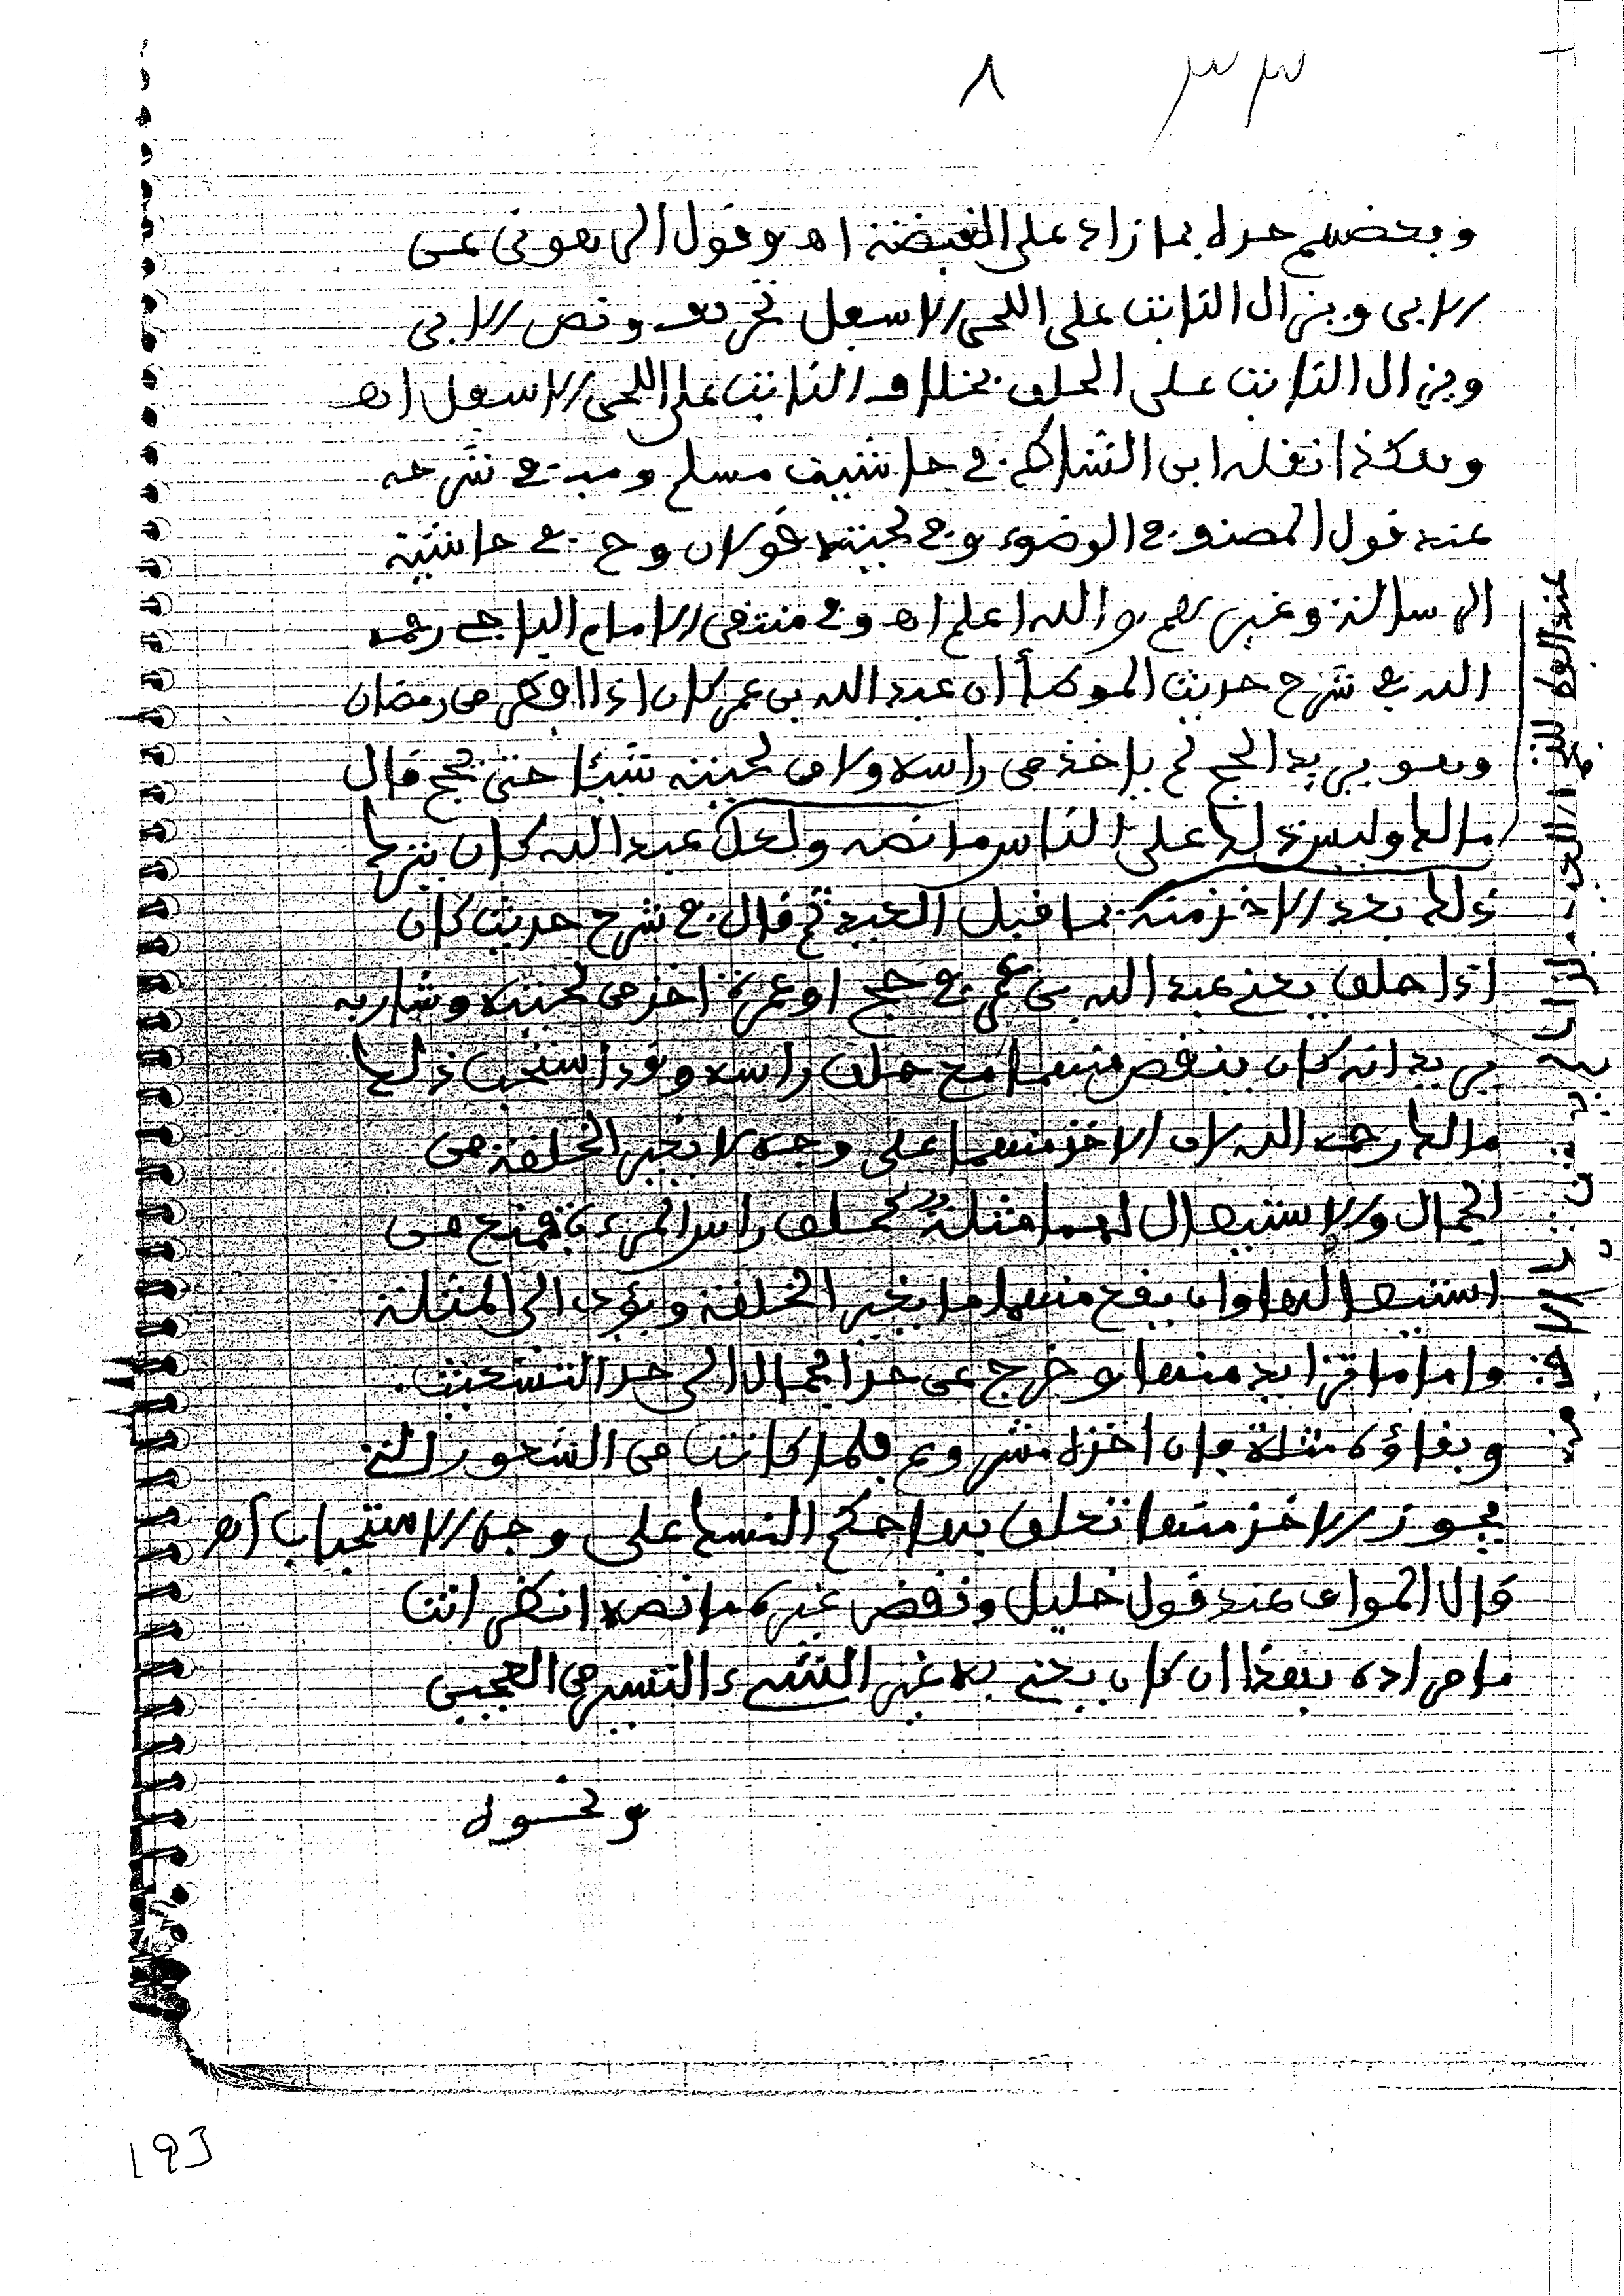 ٨ ٣٣
وبعضهم حده بما زاد على القبضة اه وقول الرهوني عن
الابي ويزال النابت على اللحي الاسفل تحريف ونص الابي
ويزال النابت على الحلق بخلاف النابت على اللحي الاسفل اه
وهكذا نقله ابن الشاط في حاشية مسلم ومب في شرحه
عند قول المصنف في الوضوء وفي لحيته قولان وح في حاشية
الرسالة وغيرهم والله اعلم اه وفي منتقى الامام الباجي رحمه
الله في شرح حديث الموطأ أن عبد الله بن عمر كان اذا افطر من رمضان
وهو يريد الحج لم ياخذ من راسه ولا من لحيته شيئا حتى يحج قال
مالك وليس ذلك على الناس ما نصه ولعل عبد الله كان يترك
ذلك بعد الاخذ منه بما قبل العيد ثم قال في شرح حديث كان
اذا حلق يعني عبد الله بن عمر في حج او عمرة اخذ من لحيته وشاربه
يريد انه كان ينقص منهما مع حلق راسه وقد استحب ذلك
مالك رحمه الله لان الاخذ منهما على وجه لا يغير الخلقة من
الجمال والاستيصال لهما مثلة كحلق راس المرءة فمنع من
استيصالها وان يقع منهما ما يغير الخلقة ويؤدي الى المثلة
واما ما تزايد منها وخرج عن حد الجمال الى حد التشعيث
وبقاؤه مثلة فان اخذه مشروع فلما كانت من الشعور التي
يجوز الاخذ منها تعلق بها حكم النسك على وجه الاستحباب اه
قال المواق عند قول خليل ونقض غيره ما نصه انظر انت
ما مراده بهذا ان كان يعني به غير الشيء اليسير من العجين
ونحوه
193